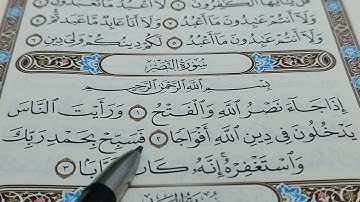 قُلْ يَا أَيُّهَا الْكَافِرُونَ ۝١ لَا أَعْبُدُ مَا تَعْبُدُونَ ۝٢
وَلَا أَنتُمْ عَابِدُونَ مَا أَعْبُدُ ۝٣ وَلَا أَنَا عَابِدٌ مَّا عَبَدتُّمْ ۝٤
وَلَا أَنتُمْ عَابِدُونَ مَا أَعْبُدُ ۝٥ لَكُمْ دِينُكُمْ وَلِيَ دِينِ ۝٦
سُورَةُ النَّصْرِ
بِسْمِ اللَّهِ الرَّحْمَٰنِ الرَّحِيمِ
إِذَا جَاءَ نَصْرُ اللَّهِ وَالْفَتْحُ ۝١ وَرَأَيْتَ النَّاسَ
يَدْخُلُونَ فِي دِينِ اللَّهِ أَفْوَاجًا ۝٢ فَسَبِّحْ بِحَمْدِ رَبِّكَ
وَاسْتَغْفِرْهُ إِنَّهُ كَانَ تَوَّابًا ۝٣